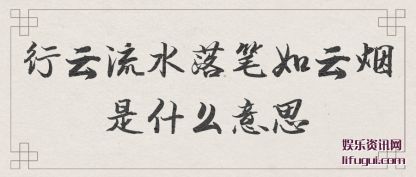 行云流水落笔如云烟
是什么意思
娱乐资讯网
lifugui.com